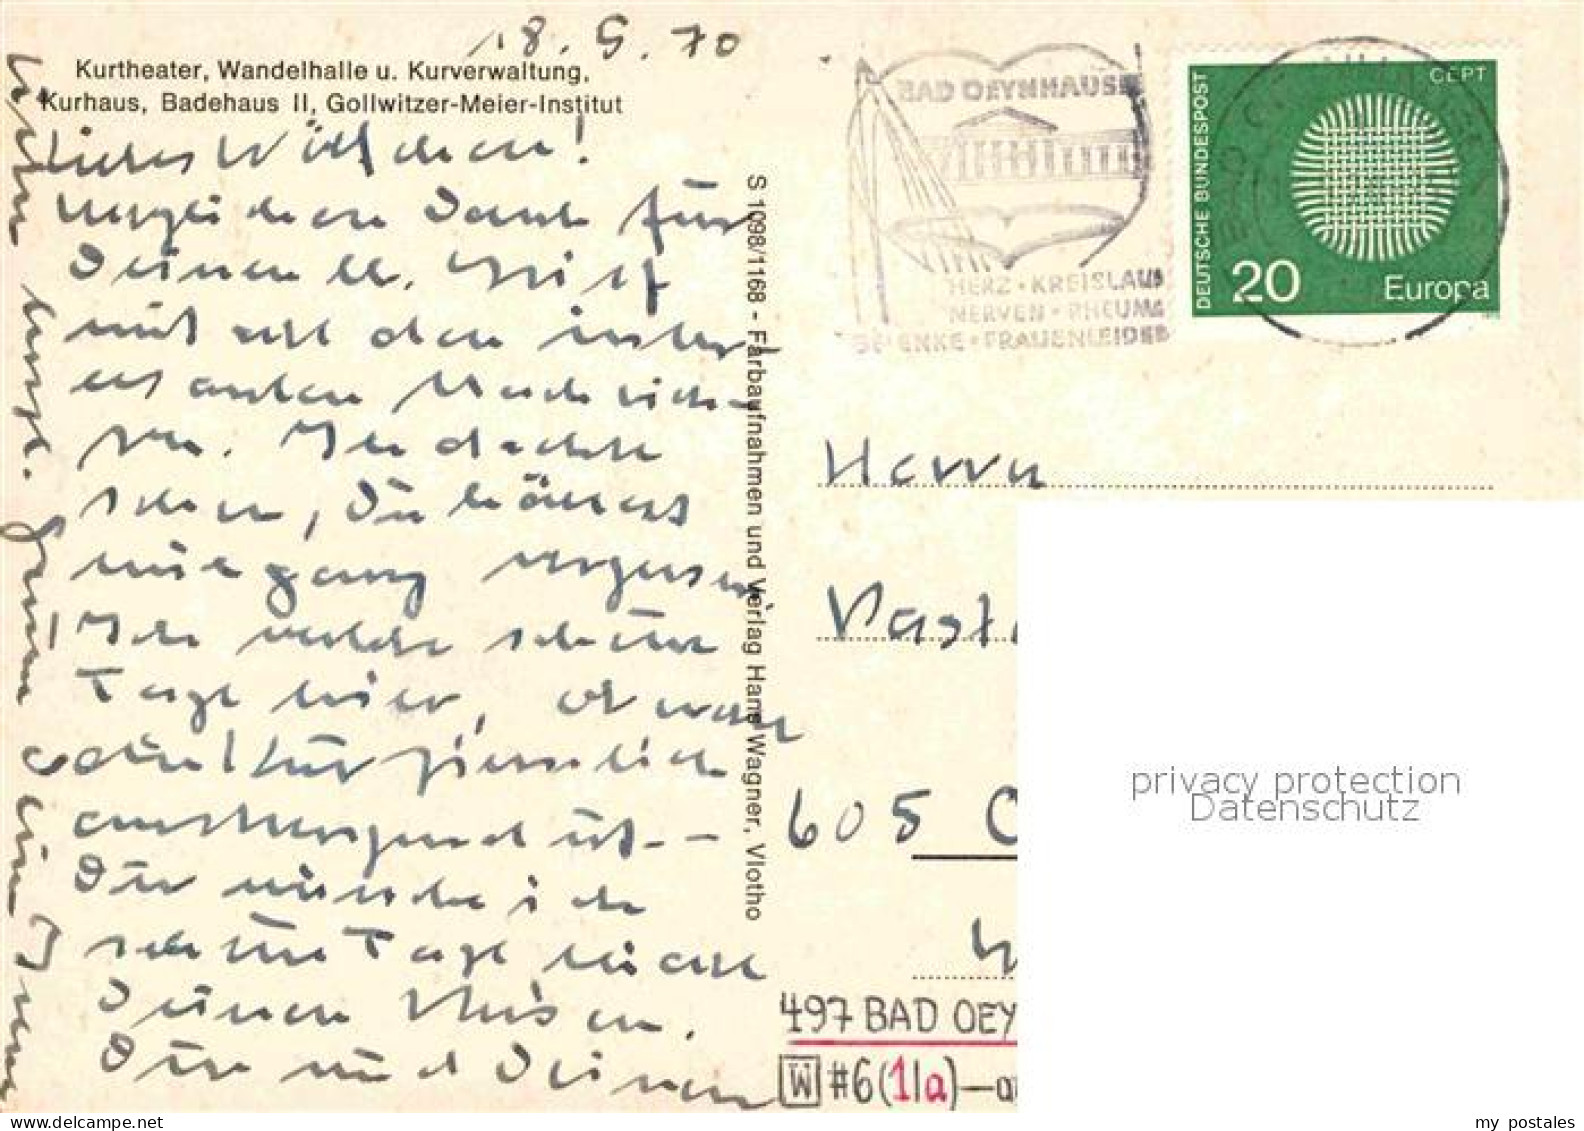 18. 5. 70
Kurtheater, Wandelhalle u. Kurverwaltung,
Kurhaus, Badehaus II, Gollwitzer-Meier-Institut
Liebes Wölfchen!
Herzlichen Dank für
Deinen lb. Brief
mit all den inter-
essanten Nachrich-
ten. Ich dachte
schon, Du hättest
mich ganz vergessen
Ich verlebe schöne
Tage hier, etwas
die Kur ziemlich
anstrengend ist. -
Dir wünsche ich
schöne Tage
Deinen
Dir und Deinen
herzl. Grüße
S 1098/1168 - Farbaufnahmen und Verlag Hans Wagner, Vlotho
BAD OEYNHAUSEN
HERZ · KREISLAUF
NERVEN · RHEUMA
GELENKE · FRAUENLEIDEN
DEUTSCHE BUNDESPOST
CEPT
20
Europa
Herrn
Pasto
605 O
497 BAD OEY
W #6(1/a)
privacy protection
Datenschutz
my postales